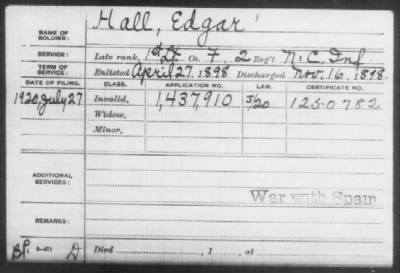 NAME OF SOLDIER: Hall, Edgar
SERVICE: Late rank, 1st Lt Co. F, 2 Reg't N.C. Inf
TERM OF SERVICE: Enlisted April 27, 1898 Discharged Nov. 16, 1898.
DATE OF FILING. CLASS. APPLICATION NO. LAW. CERTIFICATE NO.
1920, July 27 Invalid, 1,437,910 5/20 1250782
Widow,
Minor,
ADDITIONAL SERVICES:
War with Spain
REMARKS:
Died , 1 , at